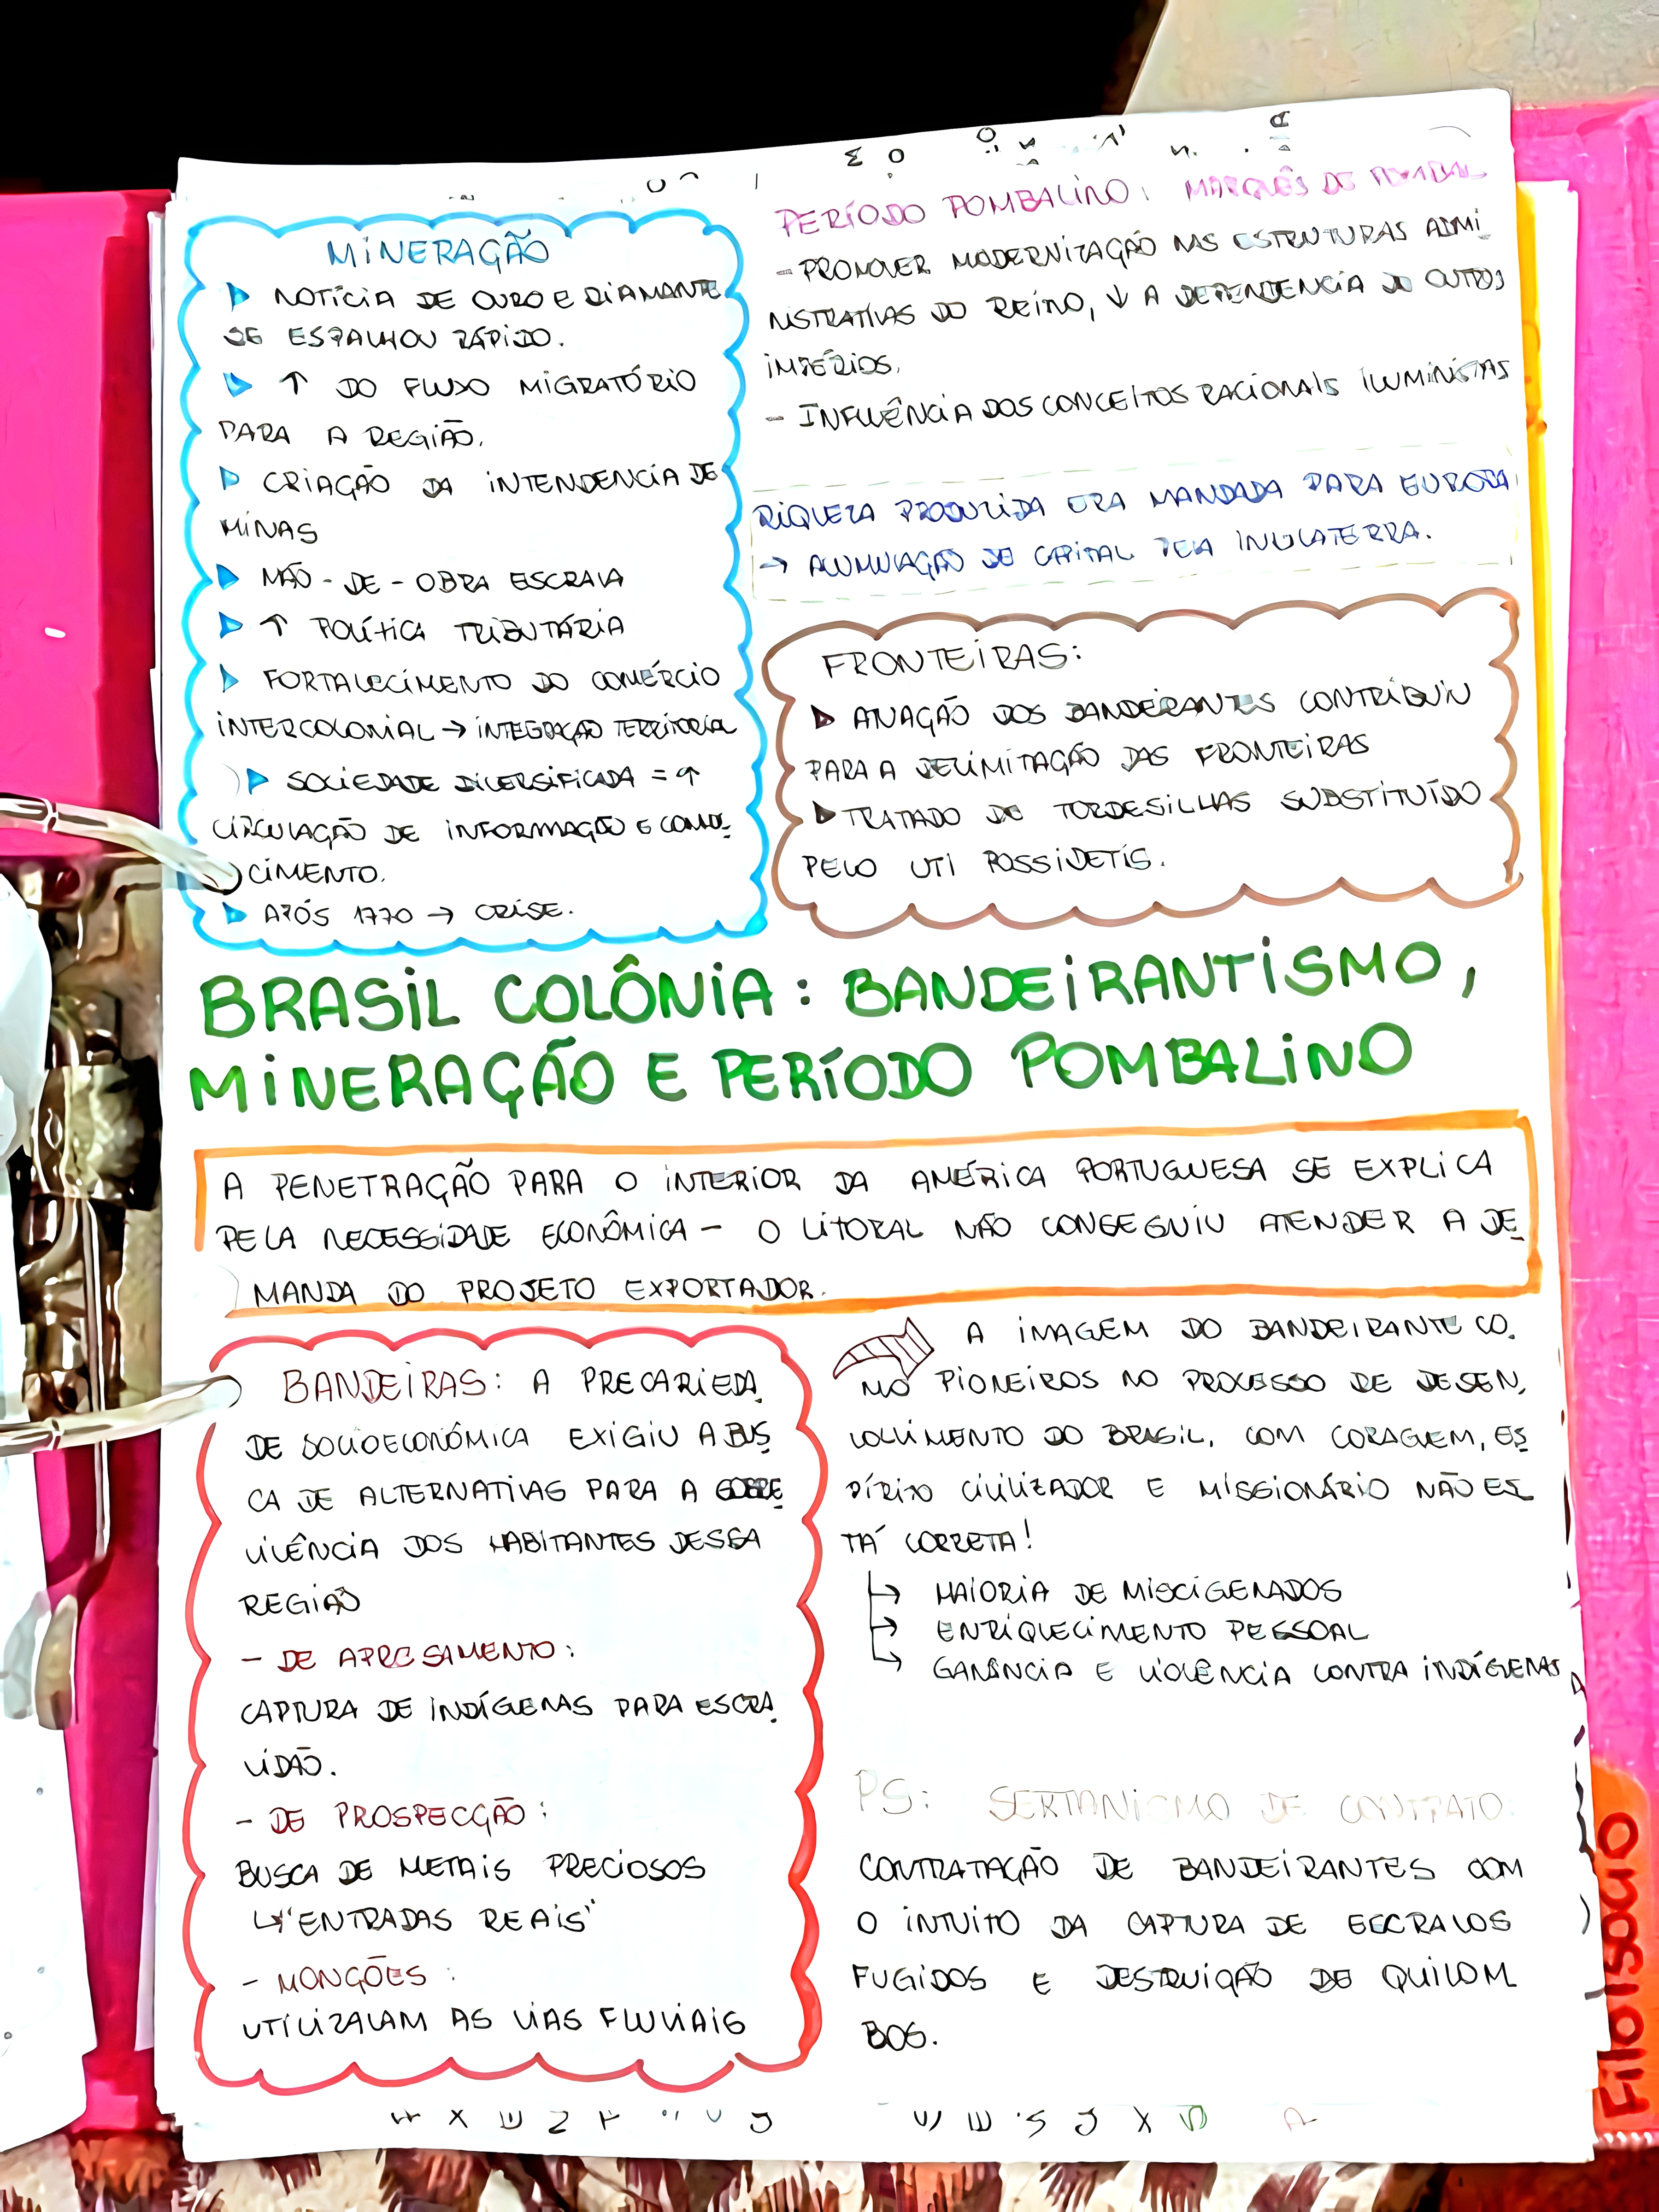 MINERAÇÃO
▷ NOTÍCIA DE OURO E DIAMANTE
SE ESPALHOU RÁPIDO.
▷ ↑ DO FLUXO MIGRATÓRIO
PARA A REGIÃO.
▷ CRIAÇÃO DA INTENDENCIA DE
MINAS
▷ MÃO-DE-OBRA ESCRAVA
▷ ↑ POLÍTICA TRIBUTÁRIA
▷ FORTALECIMENTO DO COMÉRCIO
INTERCOLONIAL → INTEGRAÇÃO TERRITORIAL
▷ SOCIEDADE DIVERSIFICADA = ↑
CIRCULAÇÃO DE INFORMAÇÃO E CONHE
CIMENTO.
▷ APÓS 1770 → CRISE.
PERÍODO POMBALINO: MARQUÊS DE POMBAL
- PROMOVER MODERNIZAÇÃO NAS ESTRUTURAS ADMI
NISTRATIVAS DO REINO, ↓ A DEPENDENCIA DO OUTROS
IMPÉRIOS.
- INFLUÊNCIA DOS CONCEITOS RACIONAIS ILUMINISTAS
RIQUEZA PRODUZIDA ERA MANDADA PARA EUROPA
→ ACUMULAÇÃO DE CAPITAL PELA INGLATERRA.
FRONTEIRAS:
▷ ANAÇÃO DOS BANDEIRANTES CONTRIBUIU
PARA A DELIMITAÇÃO DAS FRONTEIRAS
▷ TRATADO DE TORDESILHAS SUBSTITUÍDO
PELO UTI POSSIDETIS.
BRASIL COLÔNIA: BANDEIRANTISMO,
MINERAÇÃO E PERÍODO POMBALINO
A PENETRAÇÃO PARA O INTERIOR DA AMÉRICA PORTUGUESA SE EXPLICA
PELA NECESSIDADE ECONÔMICA - O LITORAL NÃO CONSEGUIU ATENDER A DE
MANDA DO PROJETO EXPORTADOR.
BANDEIRAS: A PRECARIEDA
DE SOCIOECONÔMICA EXIGIU A BUS
CA DE ALTERNATIVAS PARA A SOBRE
VIVÊNCIA DOS HABITANTES DESSA
REGIÃO
- DE APRESAMENTO:
CAPTURA DE INDÍGENAS PARA ESCRA
VIDÃO.
- DE PROSPECÇÃO:
BUSCA DE METAIS PRECIOSOS
↳ "ENTRADAS REAIS"
- MONÇÕES:
UTILIZAVAM AS VIAS FLUVIAIS
A IMAGEM DO BANDEIRANTE CO
MO PIONEIROS NO PROCESSO DE DESEN
VOLVIMENTO DO BRASIL, COM CORAGEM, ES
PÍRITO CIVILIZADOR E MISSIONÁRIO NÃO ES
TÁ CORRETA!
↳ MAIORIA DE MISCIGENADOS
↳ ENRIQUECIMENTO PESSOAL
↳ GANÂNCIA E VIOLÊNCIA CONTRA INDÍGENAS
PS: SERTANISMO DE CONTRATO
CONTRATAÇÃO DE BANDEIRANTES COM
O INTUITO DA CAPTURA DE ESCRAVOS
FUGIDOS E DESTRUIÇÃO DE QUILOM
BOS.
Filo|Socio